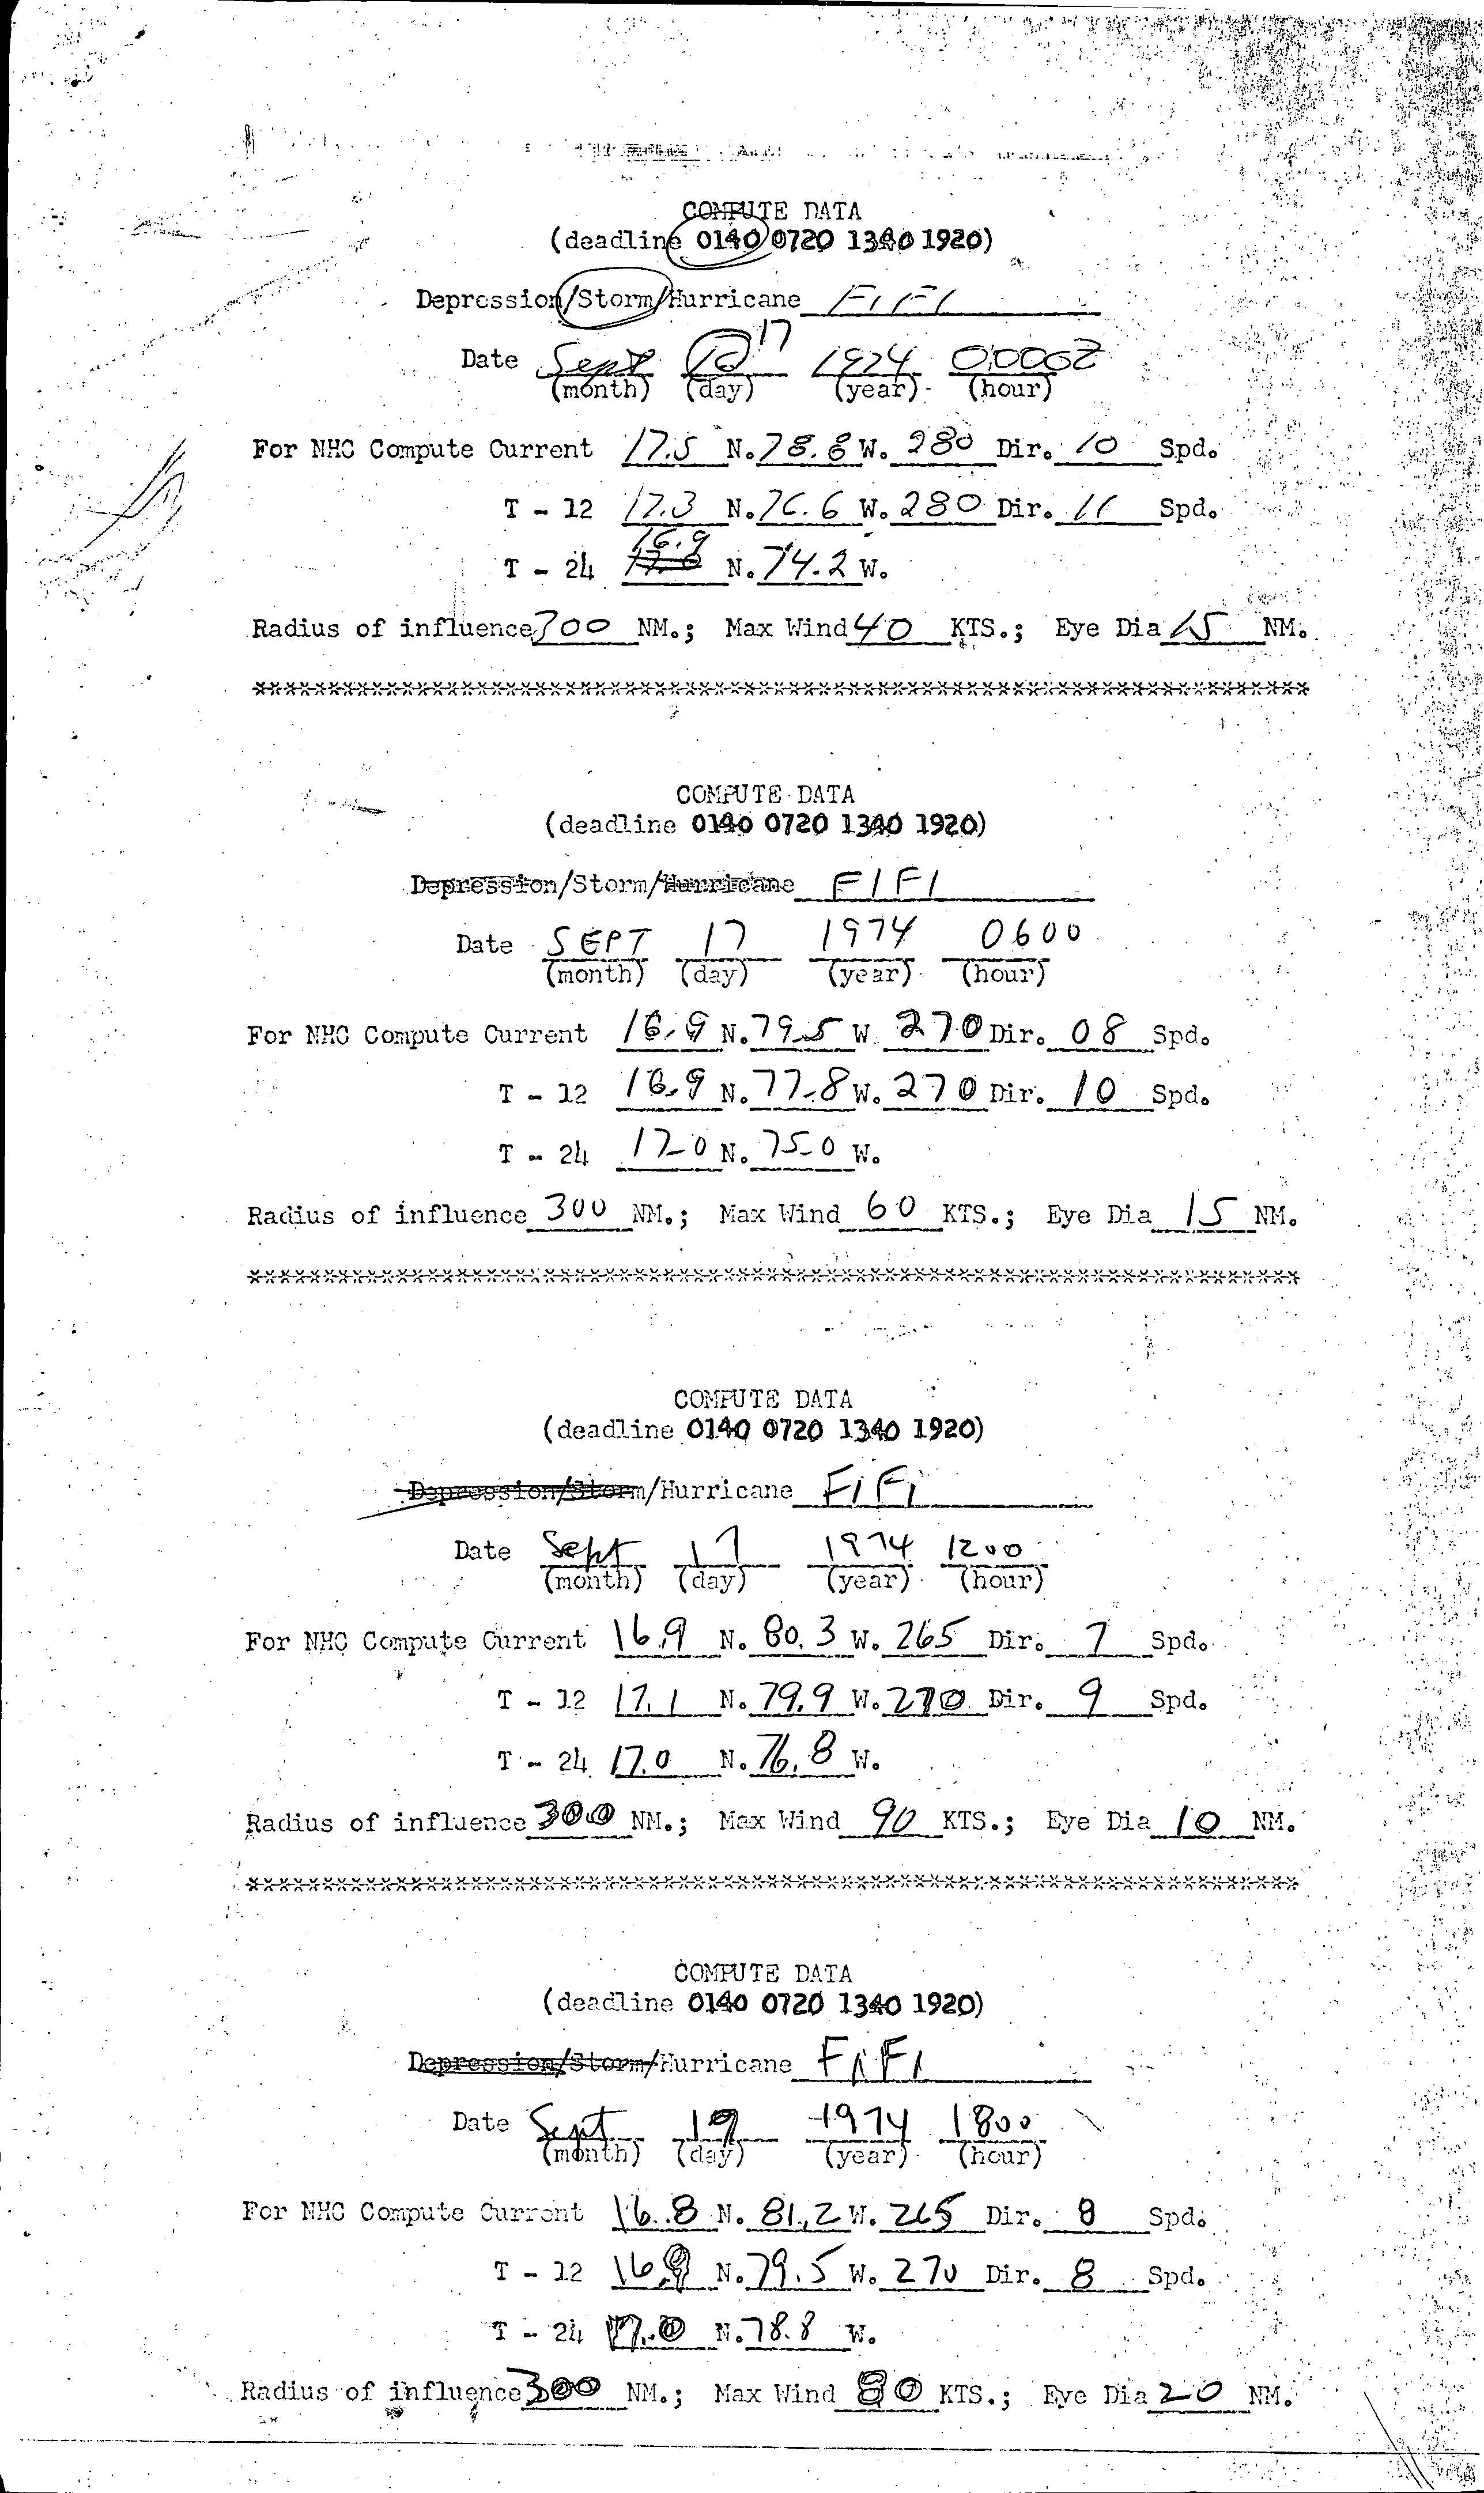 COMPUTE DATA
(deadline 0140 0720 1340 1920)
Depression/Storm/Hurricane FIFI
Date Sept 17 1974 0000Z
(month) (day) (year) (hour)
For NHC Compute Current 17.5 N. 78.8 W. 280 Dir. 10 Spd.
T - 12 17.3 N. 76.6 W. 280 Dir. 11 Spd.
T - 24 16.9 N. 74.2 W.
Radius of influence 300 NM.; Max Wind 40 KTS.; Eye Dia 15 NM.
COMPUTE DATA
(deadline 0140 0720 1340 1920)
Depression/Storm/Hurricane FIFI
Date SEPT 17 1974 0600
(month) (day) (year) (hour)
For NHC Compute Current 16.9 N. 79.5 W. 270 Dir. 08 Spd.
T - 12 16.9 N. 77.8 W. 270 Dir. 10 Spd.
T - 24 17.0 N. 75.0 W.
Radius of influence 300 NM.; Max Wind 60 KTS.; Eye Dia 15 NM.
COMPUTE DATA
(deadline 0140 0720 1340 1920)
Depression/Storm/Hurricane FIFI
Date Sept 17 1974 1200
(month) (day) (year) (hour)
For NHC Compute Current 16.9 N. 80.3 W. 265 Dir. 7 Spd.
T - 12 17.1 N. 79.9 W. 270 Dir. 9 Spd.
T - 24 17.0 N. 76.8 W.
Radius of influence 300 NM.; Max Wind 90 KTS.; Eye Dia 10 NM.
COMPUTE DATA
(deadline 0140 0720 1340 1920)
Depression/Storm/Hurricane FIFI
Date Sept 17 1974 1800
(month) (day) (year) (hour)
For NHC Compute Current 16.8 N. 81.2 W. 265 Dir. 8 Spd.
T - 12 16.9 N. 79.5 W. 270 Dir. 8 Spd.
T - 24 17.0 N. 78.8 W.
Radius of influence 300 NM.; Max Wind 80 KTS.; Eye Dia 20 NM.